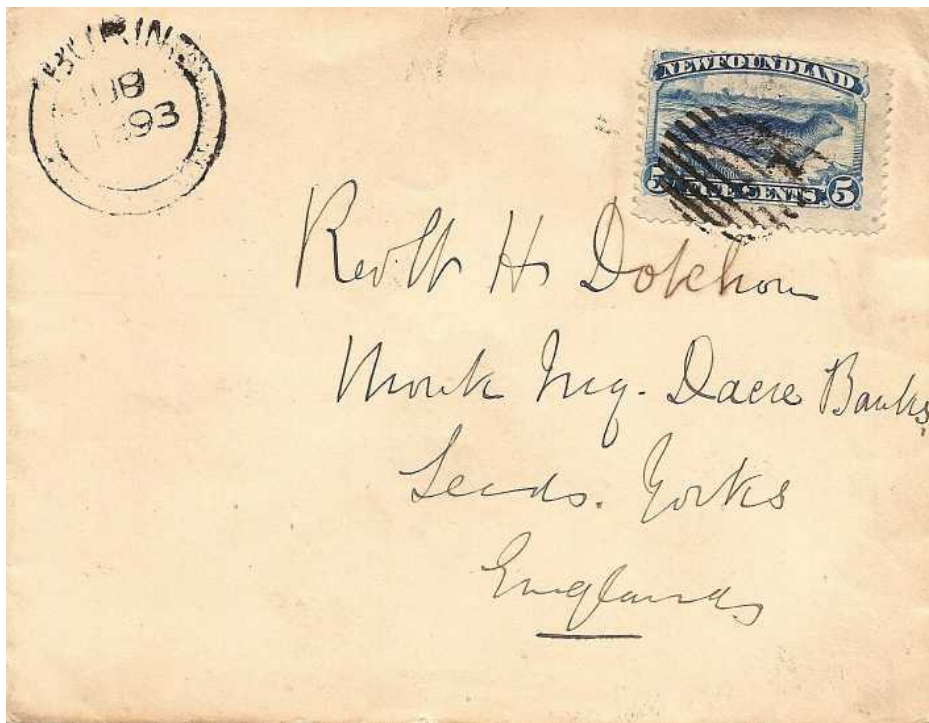 BURIN
8
93
NEWFOUNDLAND
5 FIVE CENTS 5
H Dotchon
Monk Ing. Dacre Banks,
Leeds. Yorks
England